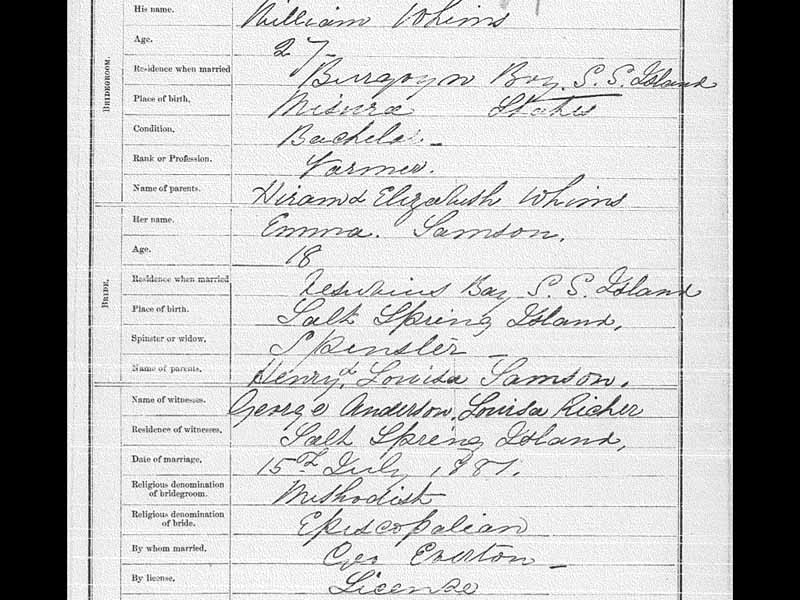 BRIDEGROOM.
His name. William Whims
Age. 27
Residence when married Burgoyn Bay. S. S. Island
Place of birth. Misura States
Condition. Bachelor
Rank or Profession. Farmer.
Name of parents. Hiram & Elizabeth Whims
BRIDE.
Her name. Emma. Samson.
Age. 18
Residence when married Vesuvius Bay S. S. Island
Place of birth. Salt Spring Island,
Spinster or widow. Spinster
Name of parents. Henry & Louisa Samson.
Name of witnesses. George Anderson. Louisa Richer
Residence of witnesses. Salt Spring Island,
Date of marriage. 15th July, 1881.
Religious denomination of bridegroom. Methodist
Religious denomination of bride. Episcopalian
By whom married. Geo Everton
By license. License